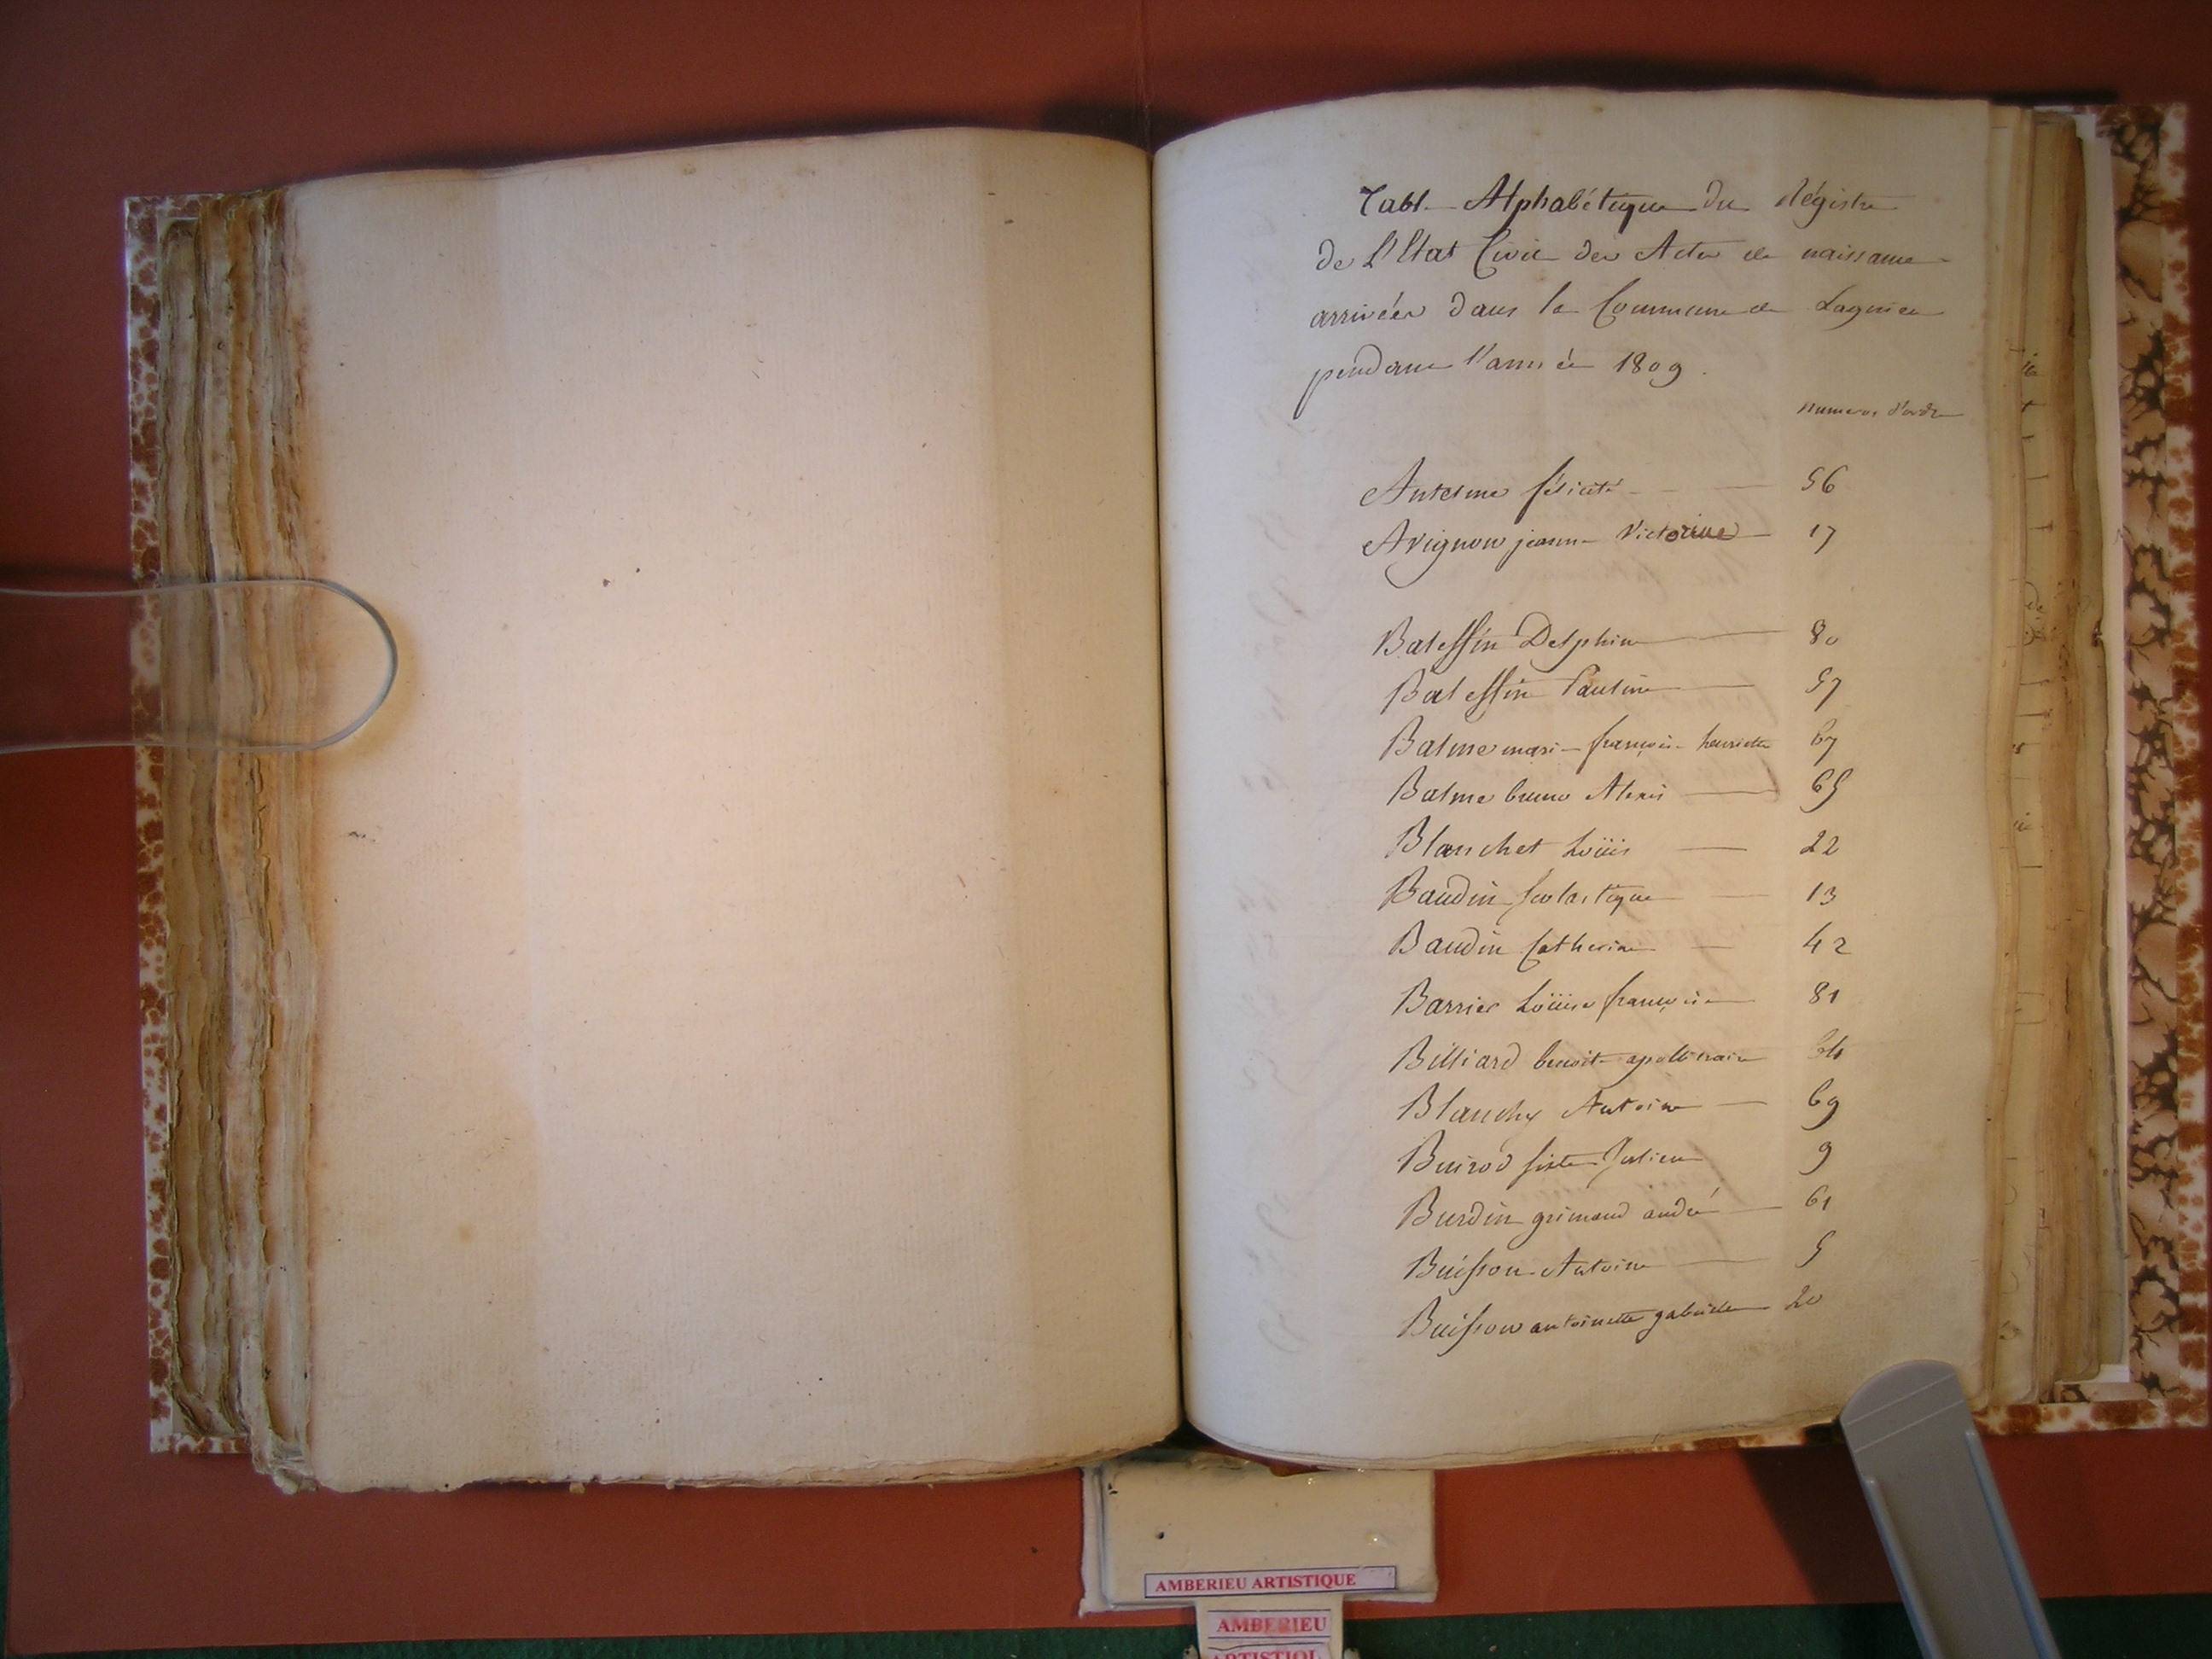 Table Alphabétique du Régistre
de L'Etat Civil des Actes de naissance
arrivées dans la Commune de Lagnieu
pendant l'année 1809.
numeros d'ordre
Antelme félicité 56
Avignon jeanne Victorine 17
Balessin Delphine 80
Balessin Pauline 57
Balme marie françoise henriette 67
Balme bruno Alexis 65
Blanchet Loüis 22
Baudin scolastique 13
Baudin Catherine 42
Barrier Loüise françoise 81
Billiard benoit apollinaire
Blanchy Antoine 69
Buirod sixte Julien 9
Burdin grimaud andré 61
Buisson Antoine 5
Buisson antoinette gabrielle 20
AMBERIEU ARTISTIQUE
AMBERIEU